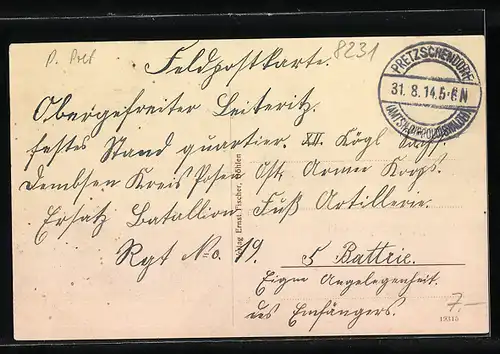 P. Pretz
8231
Feldpostkarte.
PRETZSCHENDORF
31. 8. 14. 5-6 N
(AMTSH. DIPPOLDISWALDE)
Obergefreiter Leiteritz.
festes Stand quartier. XII. Kögl Sächs.
Dembsen Kreis Posen Ost. Armee Korps.
Ersatz Batallion Fuß Artillerie.
Rgt No. 19. 5 Battrie.
Eigne Angelegenheit.
des Empfängers.
Verlag Ernst Fischer, Böhlen
7.-
19315